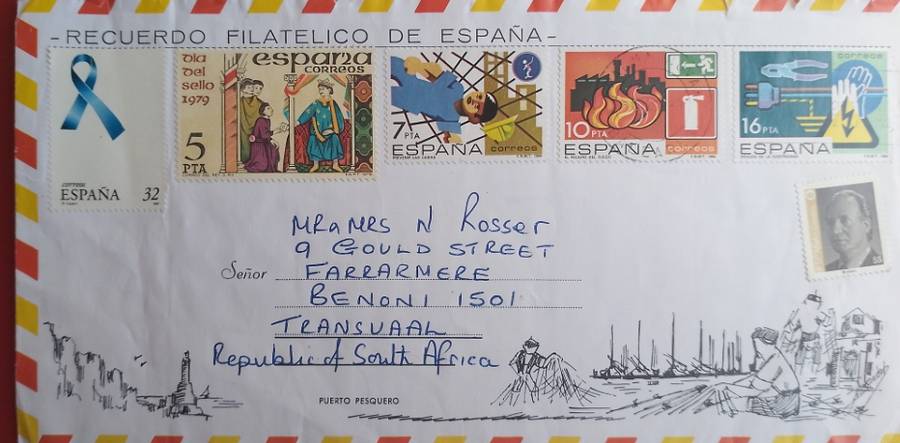 -RECUERDO FILATELICO DE ESPAÑA-
correos
ESPAÑA 32
Dia del sello 1979
españa
CORREOS
5 PTA
7 PTA
ESPAÑA
correos
10 PTA
ESPAÑA
correos
16 PTA
ESPAÑA
correos
55
MR & MRS N Rosser
9 GOULD STREET
Señor FARRARMERE
BENONI 1501
TRANSVAAL
Republic of South Africa
PUERTO PESQUERO